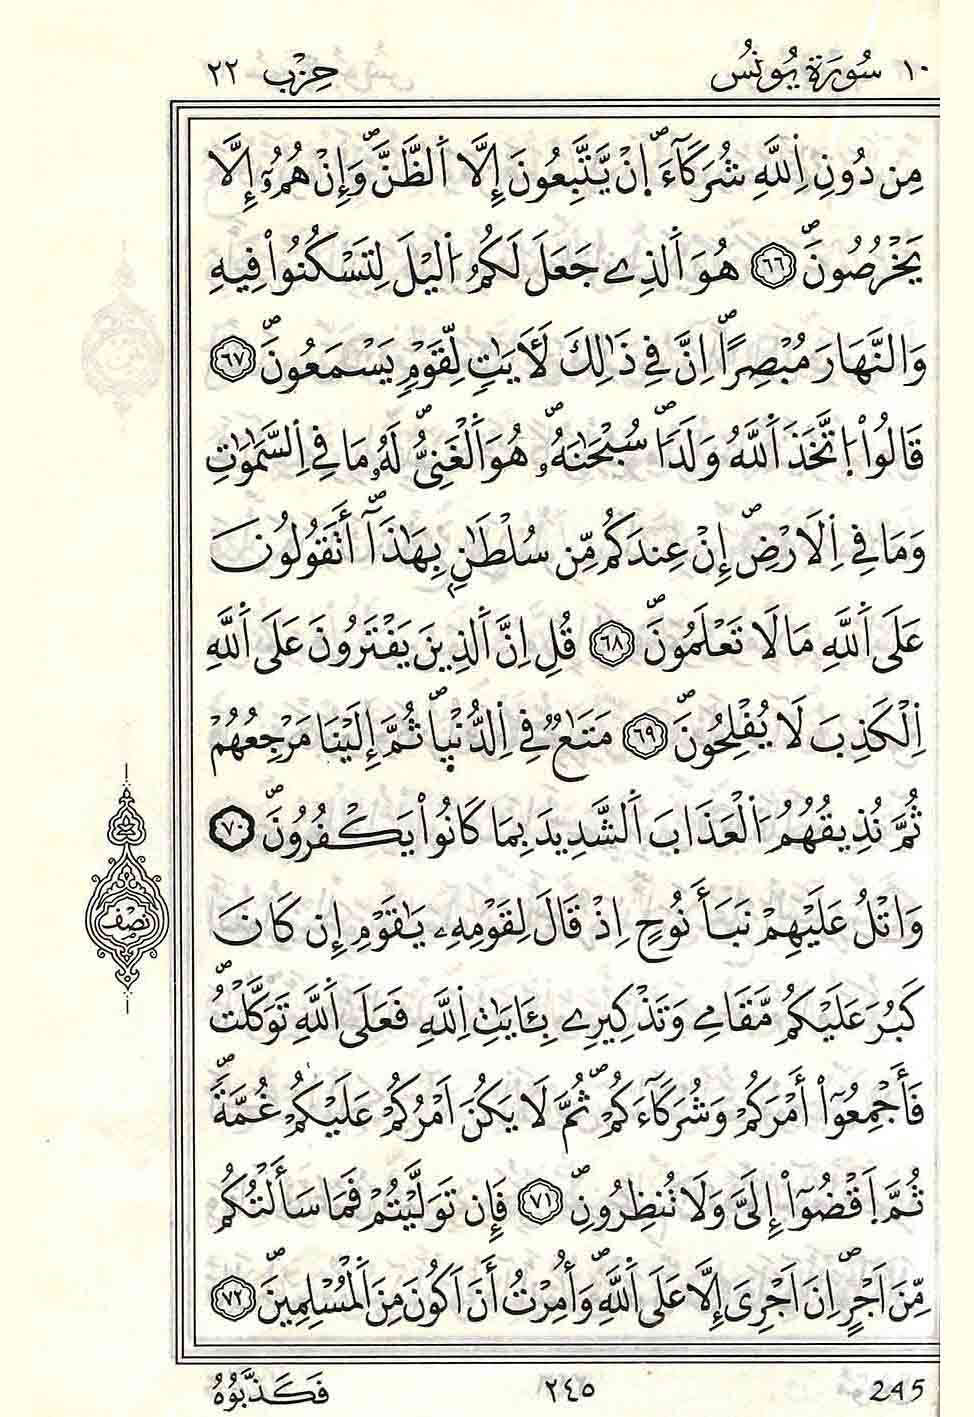 ١٠ سُورَةُ يُونُسَ حِزْب ٢٢
مِن دُونِ اِ۬للَّهِ شُرَكَآءَۖ اِنْ يَّتَّبِعُونَ إِلَّا اَ۬لظَّنَّۖ وَإِنْ هُمُۥٓ إِلَّا
يَخْرُصُونَۖ ٦٦ هُوَ اَ۬لذِے جَعَلَ لَكُمُ اُ۬ليْلَ لِتَسْكُنُواْ فِيهِ
وَالنَّهَارَ مُبْصِراًۖ اِنَّ فِے ذَٰلِكَ لَأٓيَٰتٖ لِّقَوْمٖ يَسْمَعُونَۖ ٦٧
قَالُواْ اُ۪تَّخَذَ اَ۬للَّهُ وَلَداٗۖ سُبْحَٰنَهُۥۖ هُوَ اَ۬لْغَنِيُّۖ لَهُۥ مَا فِے اِ۬لسَّمَٰوَٰتِ
وَمَا فِے اِ۬لَارْضِۖ إِنْ عِندَكُم مِّن سُلْطَٰنِۢ بِهَٰذَآۖ أَتَقُولُونَ
عَلَى اَ۬للَّهِ مَا لَا تَعْلَمُونَۖ ٦٨ قُلِ اِنَّ اَ۬لذِينَ يَفْتَرُونَ عَلَى اَ۬للَّهِ
اِ۬لْكَذِبَ لَا يُفْلِحُونَۖ ٦٩ مَتَٰعٞ فِے اِ۬لدُّنْي۪اۖ ثُمَّ إِلَيْنَا مَرْجِعُهُمْ
ثُمَّ نُذِيقُهُمُ اُ۬لْعَذَابَ اَ۬لشَّدِيدَ بِمَا كَانُواْ يَكْفُرُونَۖ ٧٠
وَاتْلُ عَلَيْهِمْ نَبَأَ نُوحٍ اِذْ قَالَ لِقَوْمِهِۦ يَٰقَوْمِ إِن كَانَ
نصف
كَبُرَ عَلَيْكُم مَّقَامِے وَتَذْكِيرِے بِـَٔايَٰتِ اِ۬للَّهِ فَعَلَى اَ۬للَّهِ تَوَكَّلْتُۖ
فَأَجْمِعُوٓاْ أَمْرَكُمْ وَشُرَكَآءَكُمْۖ ثُمَّ لَا يَكُنَ اَمْرُكُمْ عَلَيْكُمْ غُمَّةٗۖ
ثُمَّ اَ۪قْضُوٓاْ إِلَيَّ وَلَا تُنظِرُونِۖ ٧١ فَإِن تَوَلَّيْتُمْ فَمَا سَأَلْتُكُم
مِّنَ اَجْرٍۖ اِنَ اَجْرِيَ إِلَّا عَلَى اَ۬للَّهِۖ وَأُمِرْتُ أَنَ اَكُونَ مِنَ اَ۬لْمُسْلِمِينَۖ ٧٢
فَكَذَّبُوهُ ٢٤٥ 245